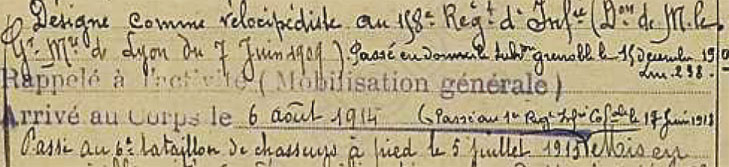 Désigné comme vélocipédiste au 158e Régt d'Infie (Don de M. le
Gr Mre de Lyon du 7 Juin 1909). Passé en domicile subdon grenoble le 15 decembre 19
Lm. 238.
Rappelé à l'activité (Mobilisation générale)
Arrivé au Corps le 6 août 1914 (Passé au 1er Regt Infie Cole le 17 Juin 1918
Passé au 6e bataillon de chasseurs à pied le 5 juillet 1915